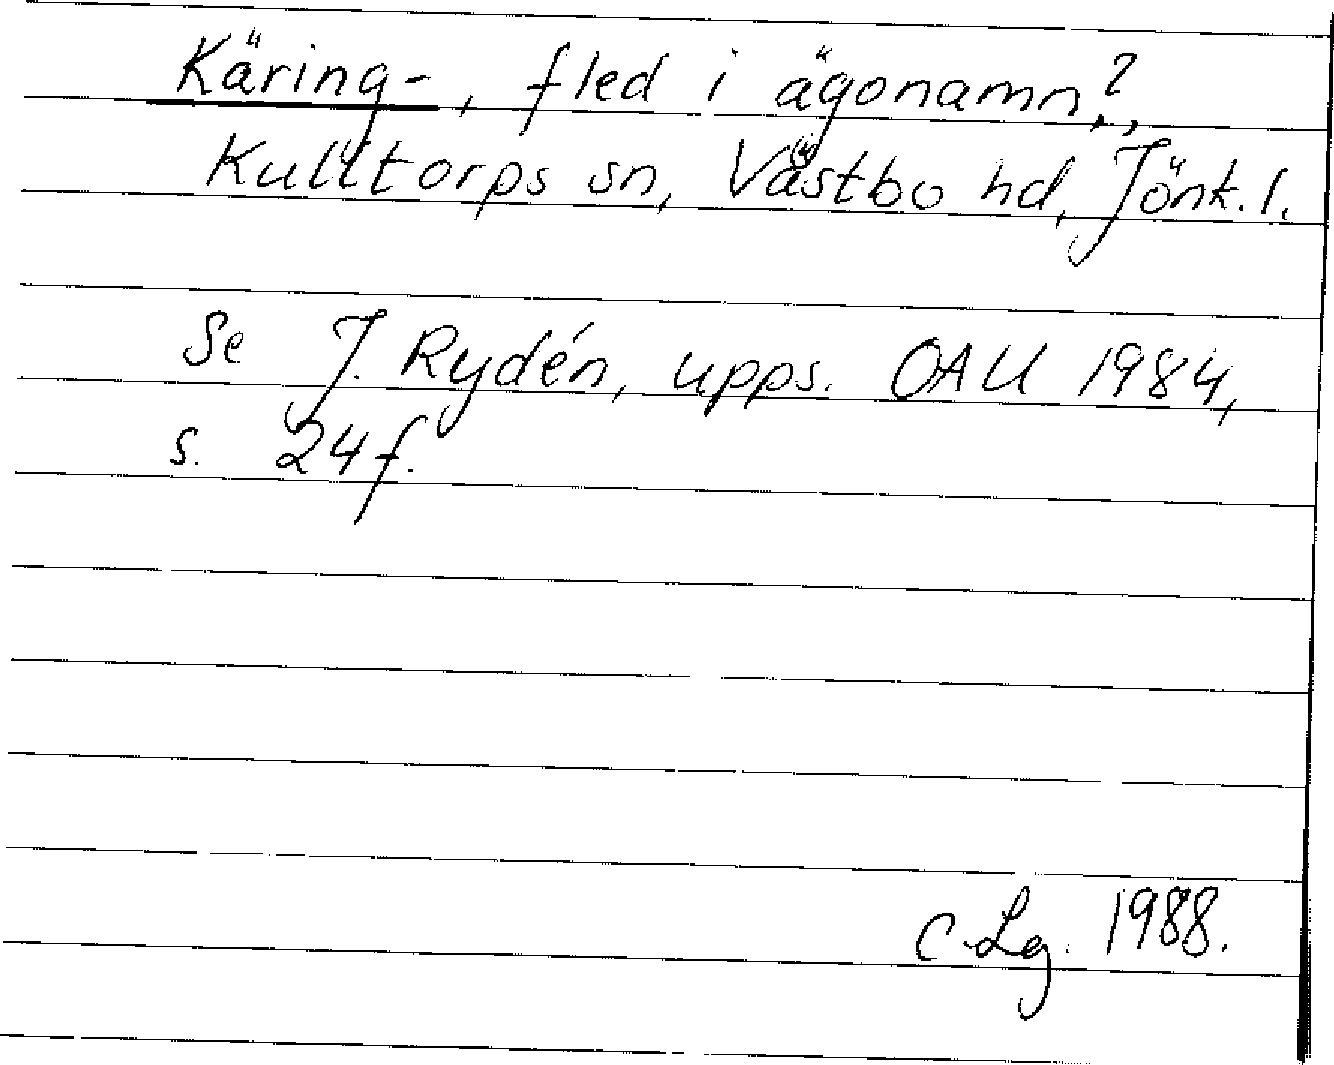 Käring-, fled i ägonamn?,
Kulltorps sn, Västbo hd, Jönk. l.
Se J. Rydén, upps. OAU 1984,
s. 24 f.
C. Lg. 1988.